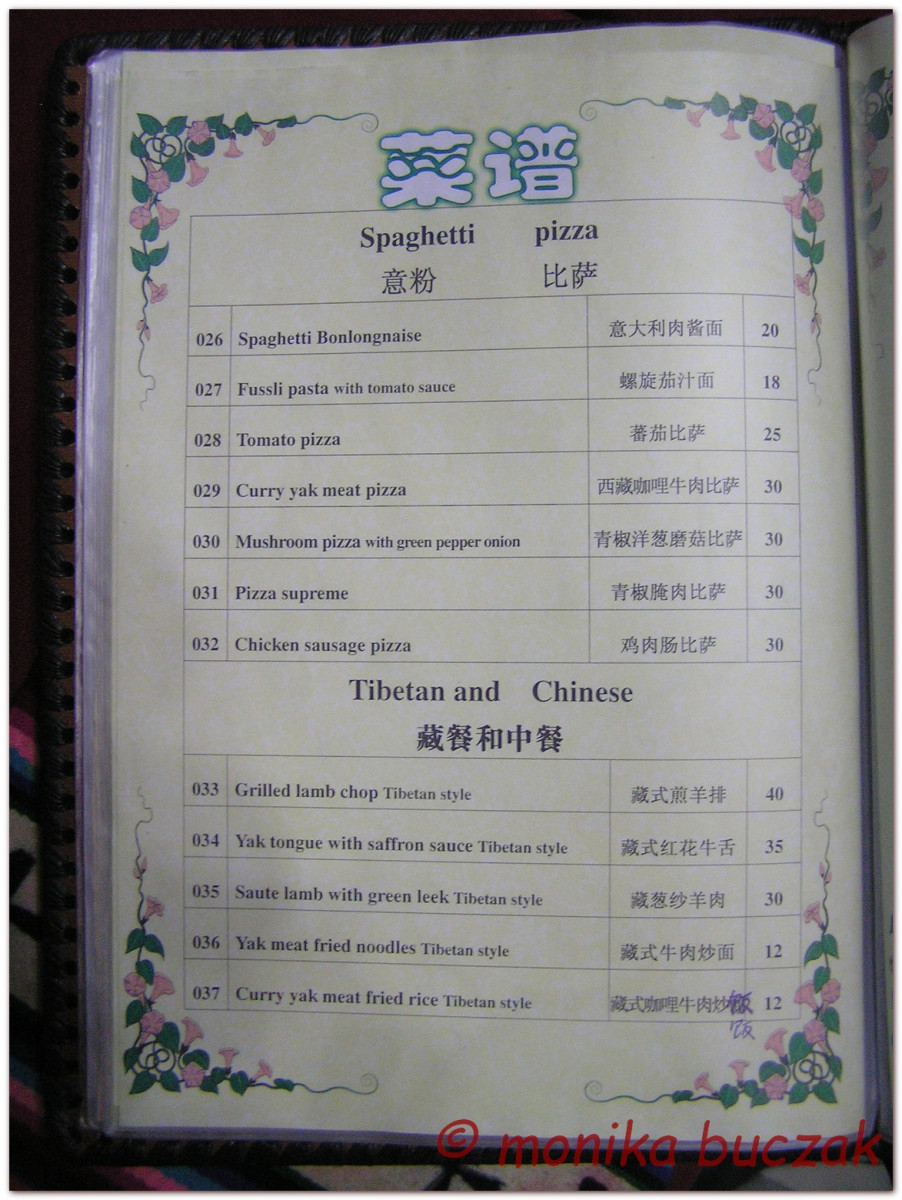 菜谱
Spaghetti pizza
意粉 比萨
026 Spaghetti Bonlongnaise 意大利肉酱面 20
027 Fussli pasta with tomato sauce 螺旋茄汁面 18
028 Tomato pizza 蕃茄比萨 25
029 Curry yak meat pizza 西藏咖哩牛肉比萨 30
030 Mushroom pizza with green pepper onion 青椒洋葱磨菇比萨 30
031 Pizza supreme 青椒腌肉比萨 30
032 Chicken sausage pizza 鸡肉肠比萨 30
Tibetan and Chinese
藏餐和中餐
033 Grilled lamb chop Tibetan style 藏式煎羊排 40
034 Yak tongue with saffron sauce Tibetan style 藏式红花牛舌 35
035 Saute lamb with green leek Tibetan style 藏葱纱羊肉 30
036 Yak meat fried noodles Tibetan style 藏式牛肉炒面 12
037 Curry yak meat fried rice Tibetan style 藏式咖哩牛肉炒饭 12
饭
© monika buczak